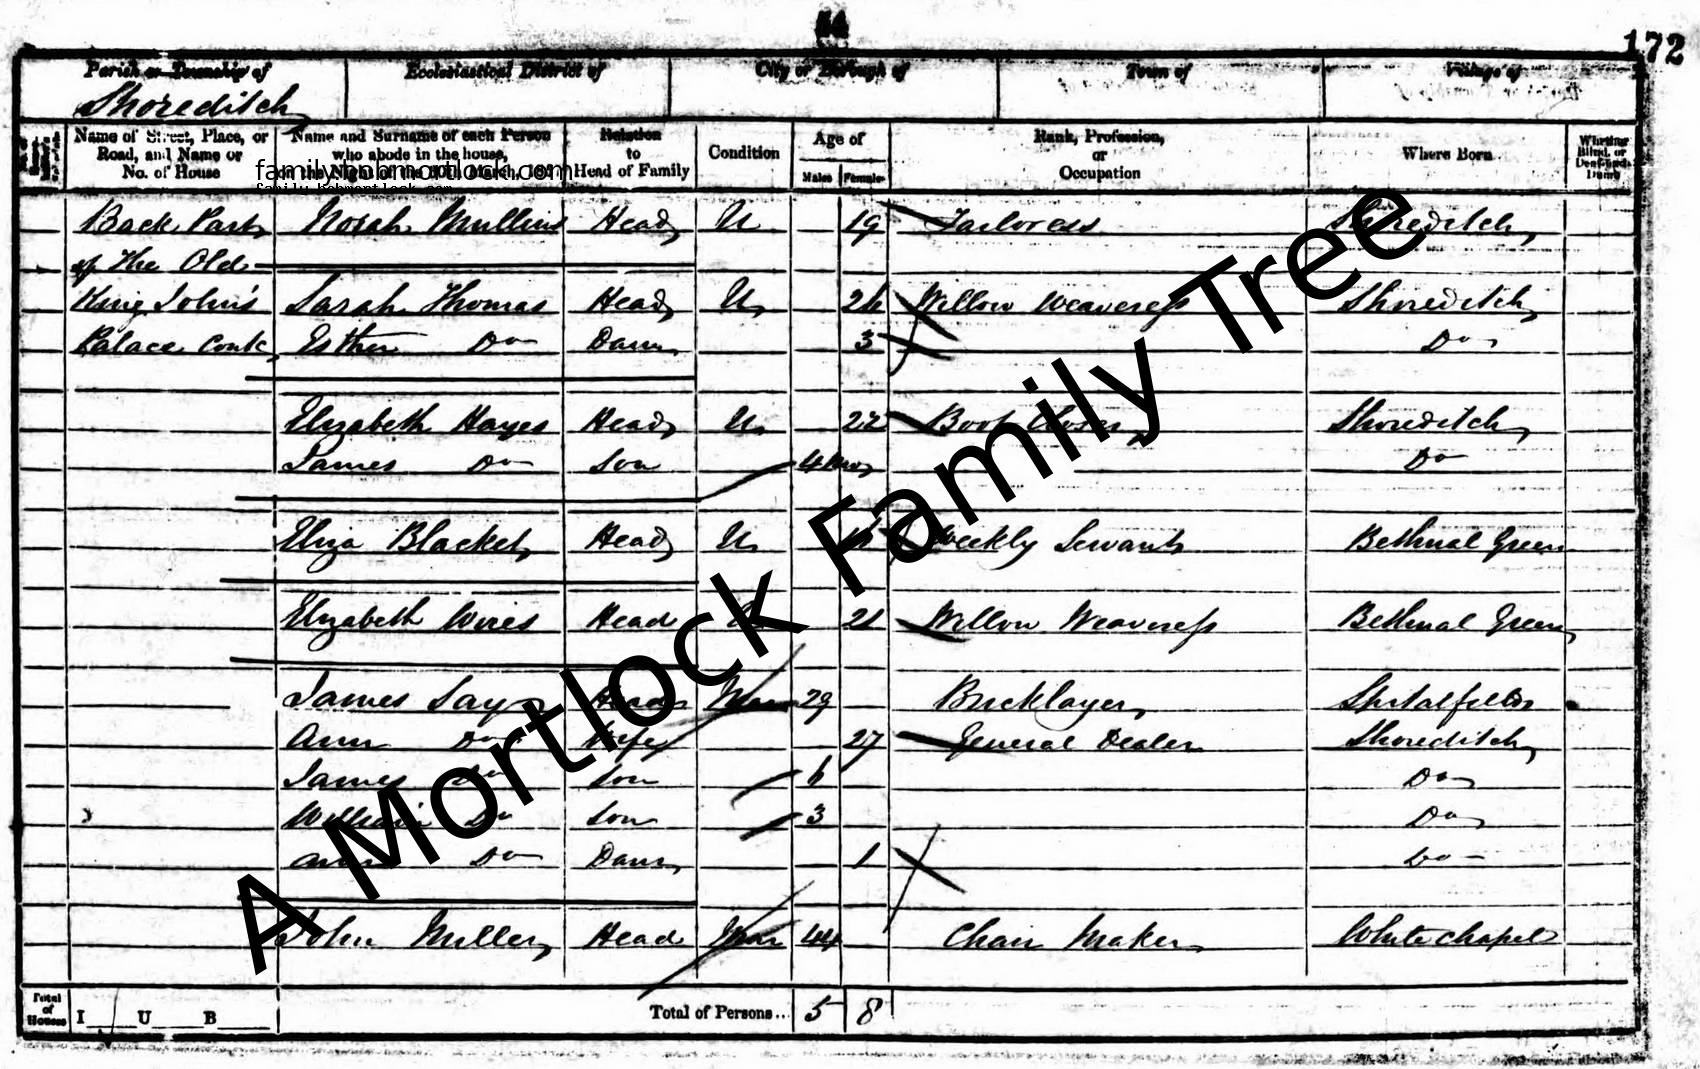 172
Parish or Township of Ecclesiastical District of City or Borough of Town of Village of
Shoreditch
Name of Street, Place, or Road, and Name or No. of House
Name and Surname of each Person who abode in the house, on the Night of the 30th March, 1851
Relation to Head of Family
Condition
Age of
Males Females
Rank, Profession, or Occupation
Where Born
Whether Blind, or Deaf-and-Dumb
family.bobmortlock.com
family.bobmortlock.com
Back Part Norah Mullins Head U 19 Tailoress Shoreditch
of the Old
King John's Sarah Thomas Head U 26 Willow Weaveress Shoreditch
Palace Esther Do Daur 3 Do
Elizabeth Hayes Head U 22 Boot Closer Shoreditch
James Do Son 4 Mos Do
Eliza Blacket Head U Weekly Servant Bethnal Green
Elizabeth Wires Head 21 Willow Weaveress Bethnal Green
James Say Head Mar 29 Bricklayer Spitalfields
Ann Do Wife 27 General Dealer Shoreditch
James Do Son 6 Do
William Do Son 3 Do
Ann Do Daur 1 Do
John Miller Head Mar 44 Chair Maker Whitechapel
Total of Houses I U B Total of Persons.. 5 8
A Mortlock Family Tree